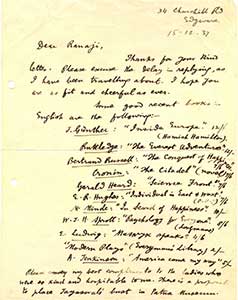 34 Churchill Rd
Edgware
15-12-37
Dear Ranaji,
Thanks for your kind
letter. Please excuse the delay in replying, as
I have been travelling about. I hope you
are as fit and cheerful as ever.
Some good recent books in
English are the following:-
J. Gunther: "Inside Europe"
(Hamish Hamilton)
Ruttledge: "The Everest Adventure"
Bertrand Russell: "The Conquest of Happi
Cronin: "The Citadel" (novel)
Gerald Heard: "Science Front"
E. R. Hughes: "Individual in East & West"
"In Search of Happiness"
W. J. H. Sprott: "Psychology for Everyone"
(Longmans)
E. Ludwig: "Masaryk speaks"
"Modern Plays" (Everyman's Library)
A. Jenkinson: "America came my way"
Please convey my best compliments to the ladies who
were so kind and hospitable to me. There is a proposal
to place Tagore's bust in Museum.